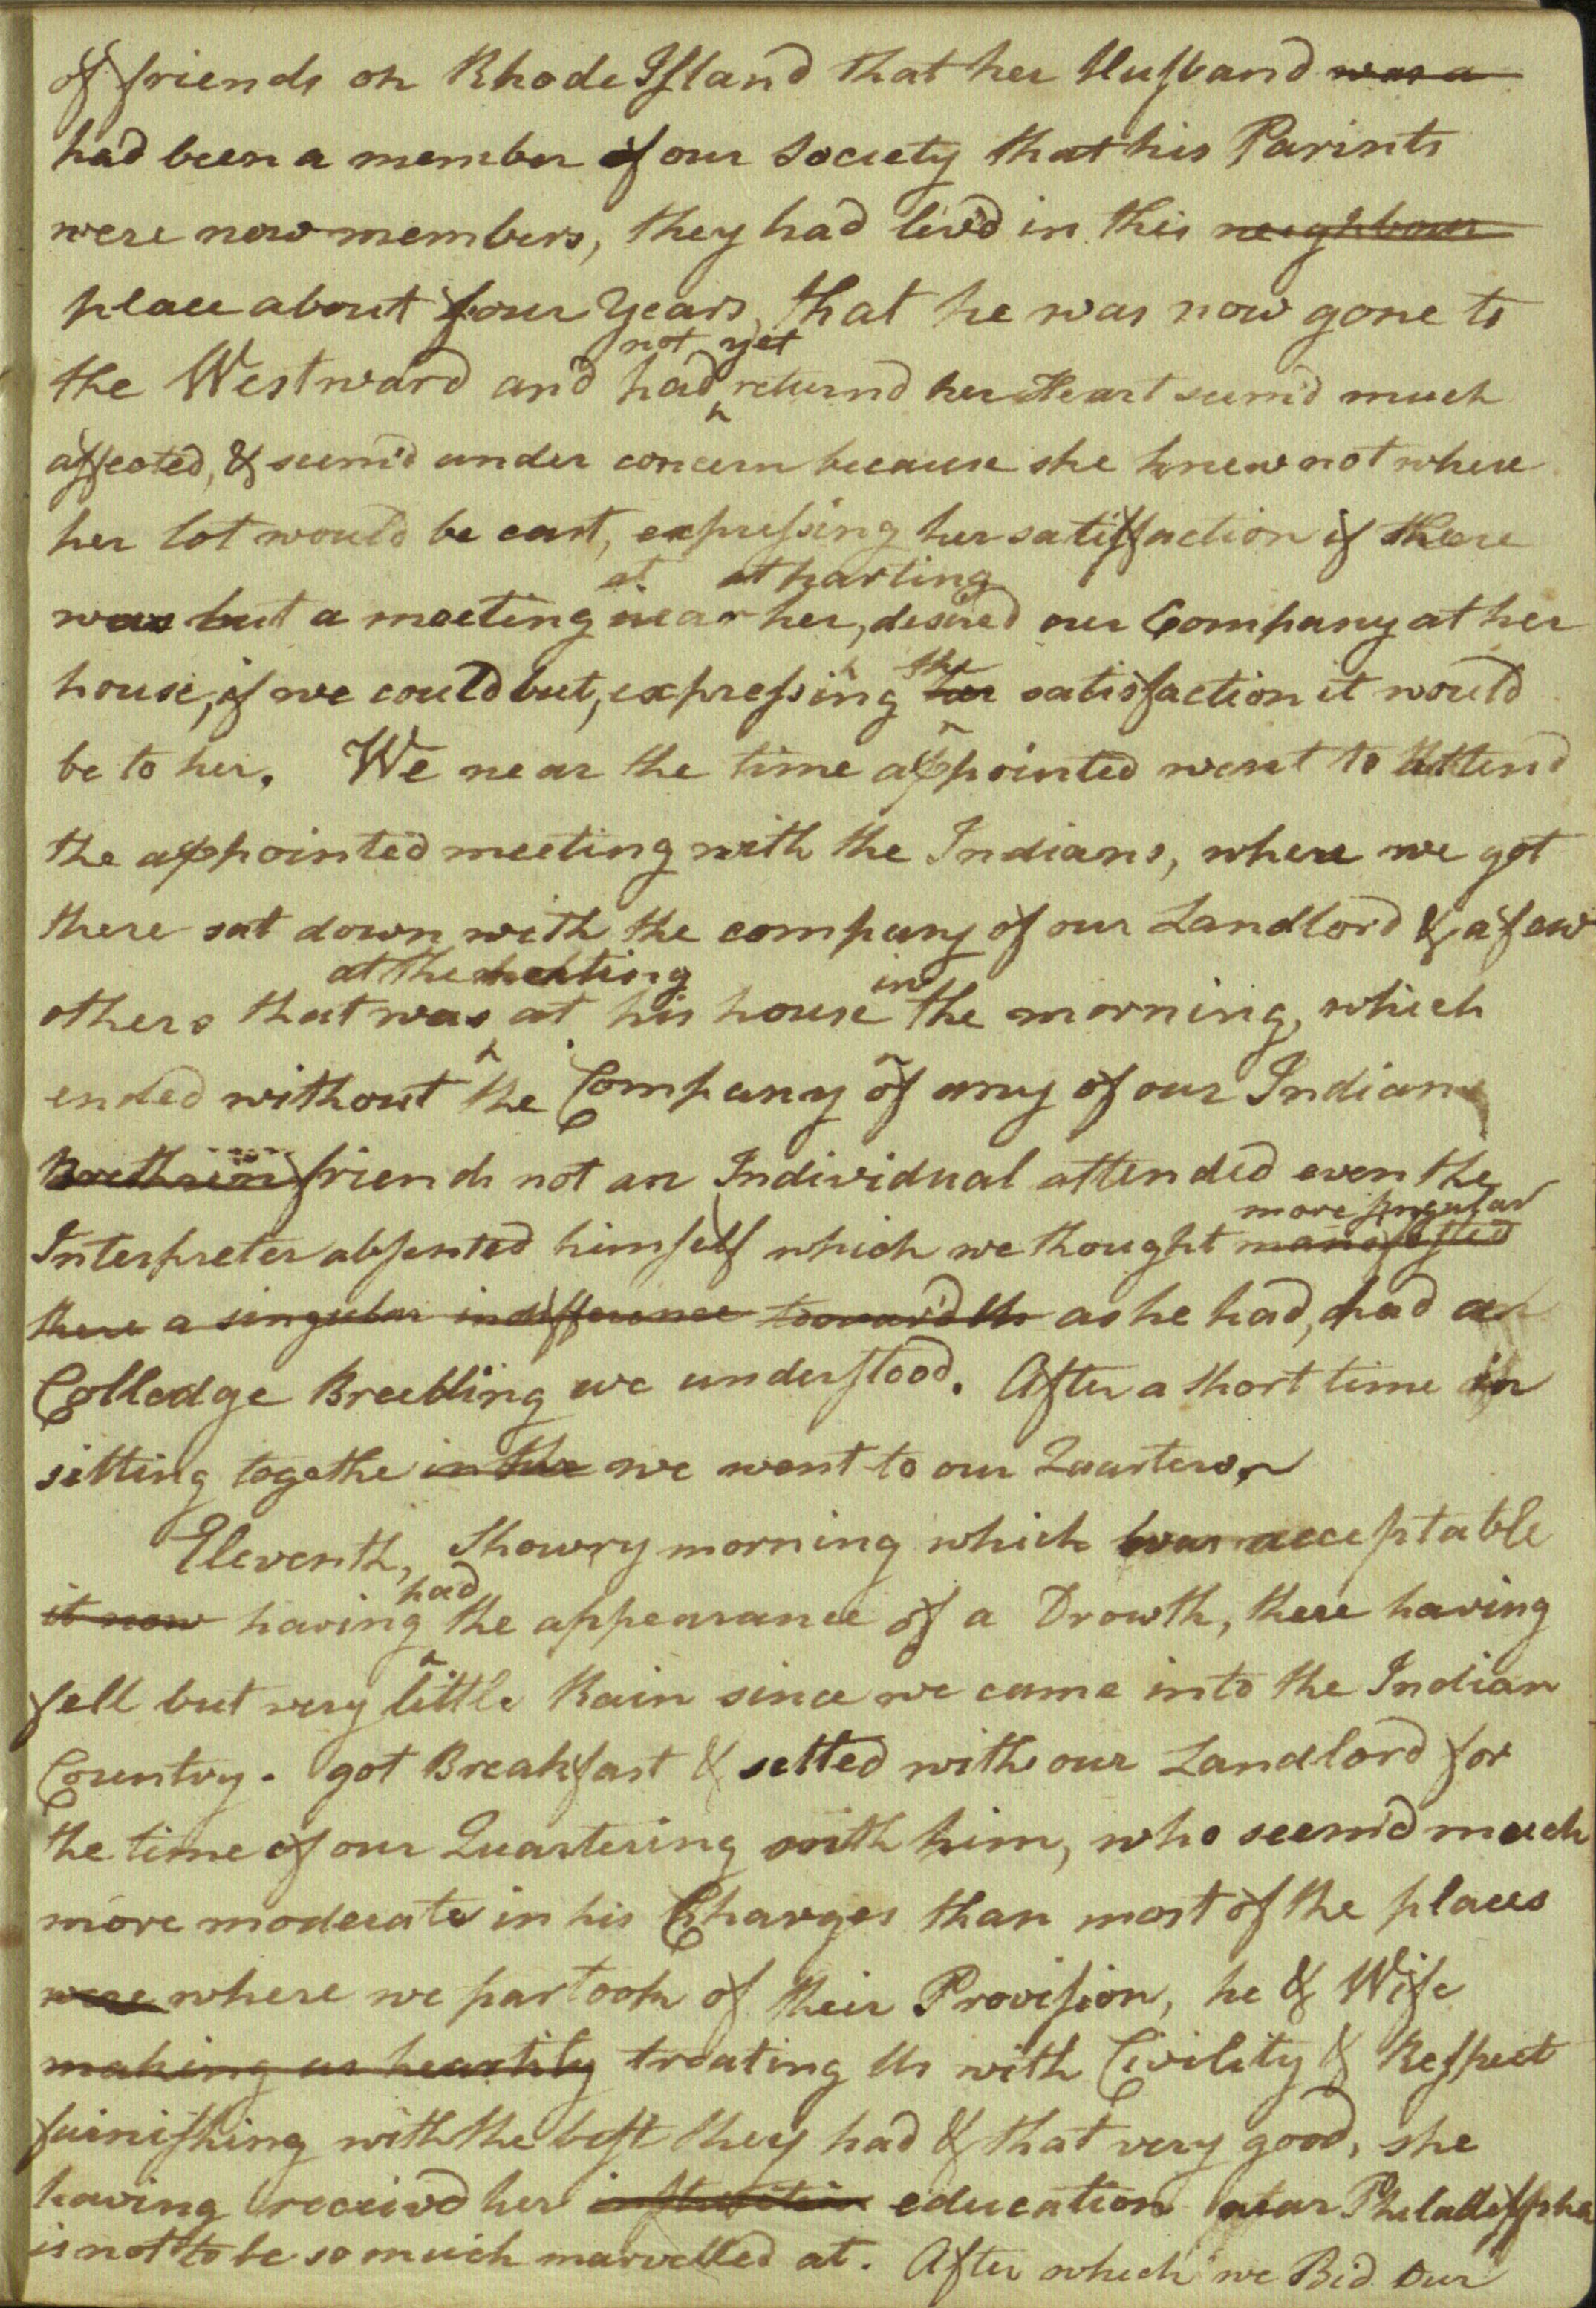 of friends on Rhode Island that her Husband was a
had been a member of our Society that his Parints
were now members, they had liv'd in this neighbour
place about four years, that he was now gone to
not yet
the Westward and had returnd her Heart seem'd much
affected, & seem'd under concern because she knew not where
her lot would be cast, expressing her satisfaction if there
at at parting
was but a meeting near her, desired our Company at her
the
house, if we could but, expressing her satisfaction it would
be to her. We near the time appointed went to Attend
the appointed meeting with the Indians, where we got
there sat down with the company of our Landlord & a few
at the meeting in
others that was at his house the morning, which
ended without the Company of any of our Indian
Brethren friends not an Individual attended even the
more singular
Interpreter absented himself which we thought manifested
there a singular indifference toward Us as he had, had an
Colledge Breeding we understood. After a short time in
sitting togethe in the we went to our Quarters.
Eleventh, Showry morning which was acceptable
had
it now having the appearance of a Drowth, there having
fell but very little Rain since we came into the Indian
Country. got Breakfast & setted with our Landlord for
the time of our Quartering with him, who seem'd much
more moderate in his Charges than most of the places
were where we partook of their Provision, he & Wife
making us heartily treating Us with Civility & Respect
furnishing with the best they had & that very good, she
having receivd her education near Philadelpha
is not to be so much marvelled at. After which we Bid Our